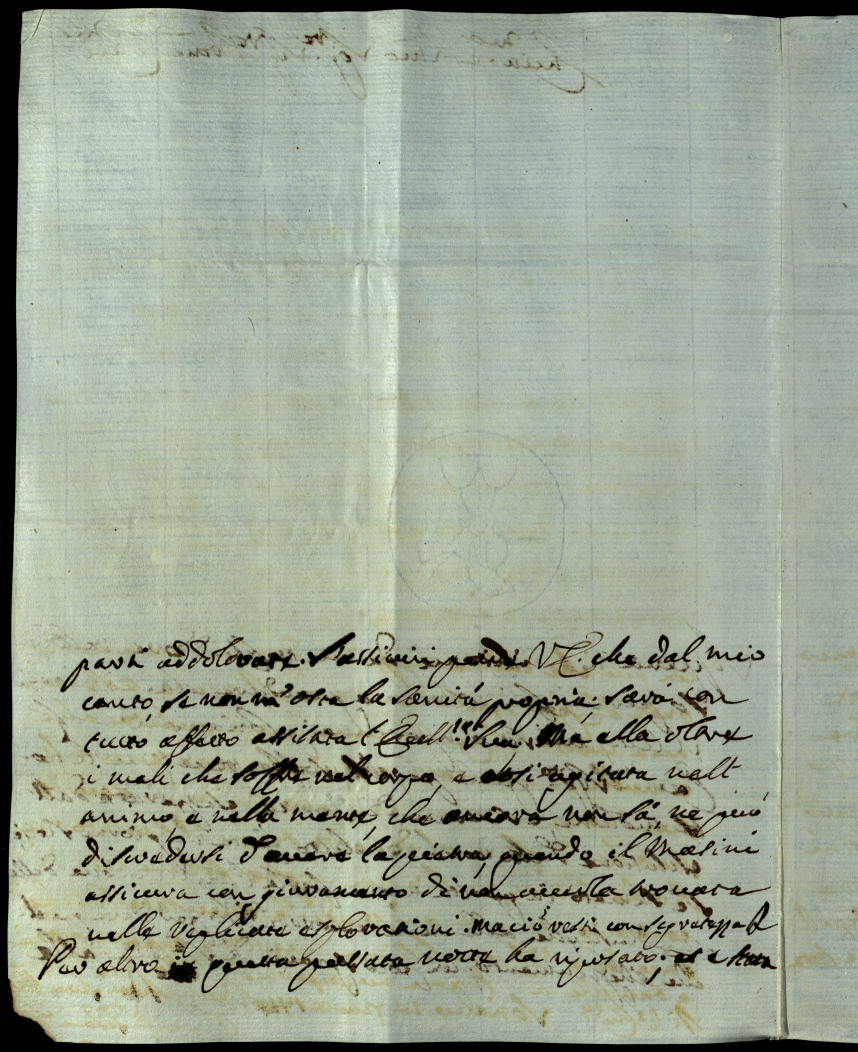 parti addolorate. V.E. che dal mio
canto, se non m'osta la sanità propria, sarà con
tutto affetto assistita l'Eccell.ma Sua. Mà ella oltre
i mali che soffre nel corpo, e così agitata nell
animo, e nella mente, che ancora non sà, ne può
discredersi d'avere la pietra, quando il Masini
assicura con giuramento di non averla trovata
nelle replicate esplorazioni. ma ciò resti con segretezza
Per altro in questa passata notte ha riposato, ed è stata